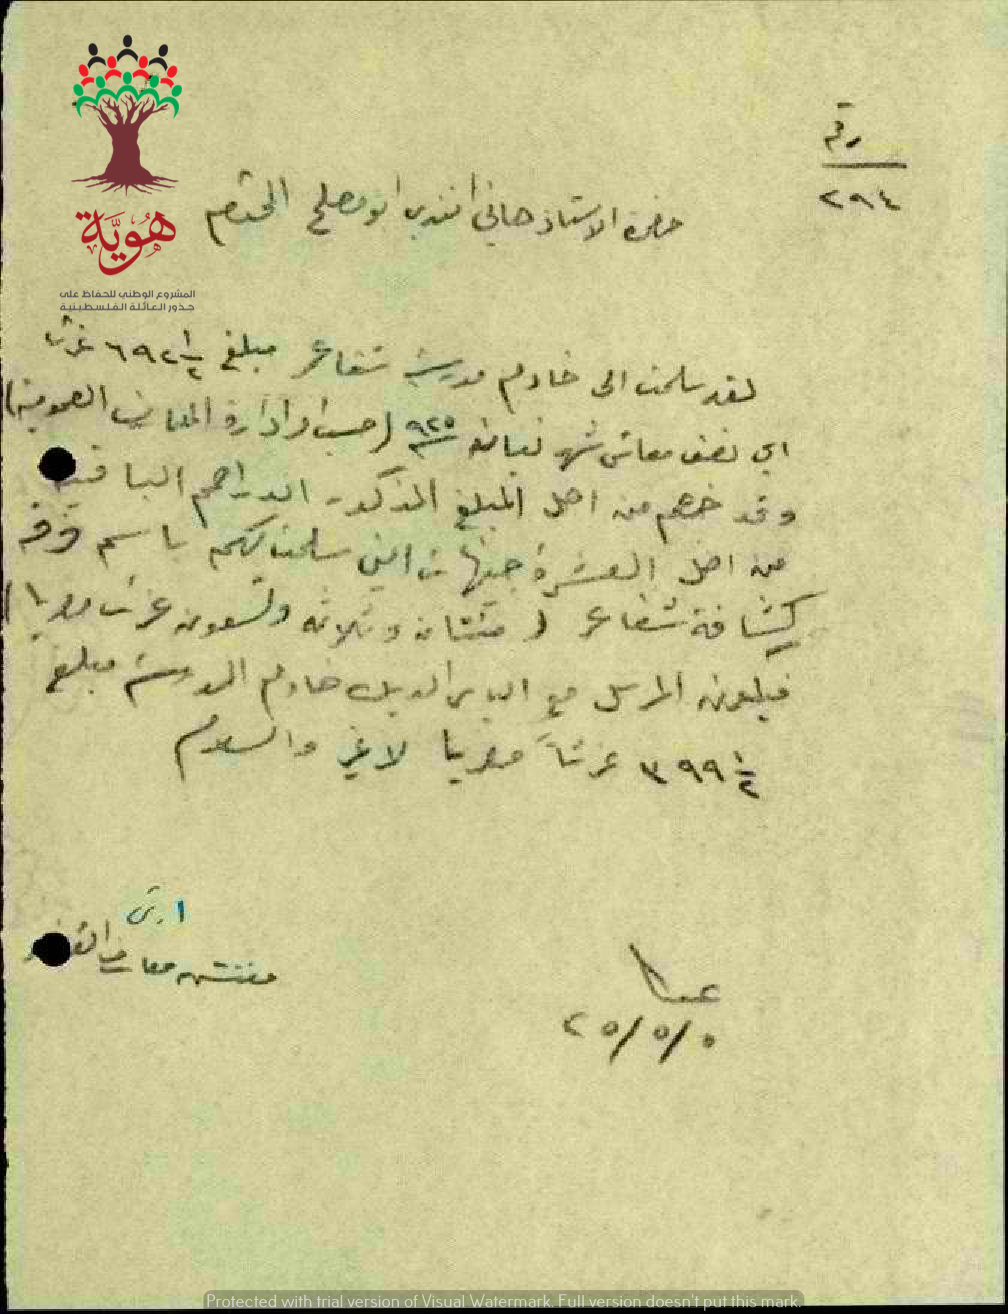 هُوِيَّة
المشروع الوطني للحفاظ على
جذور العائلة الفلسطينية
رقم
٢٩٤
حضرة الاستاذ هاني افندي ابو مصلح المحترم
لقد سلمت الى خادم مدرسة شفاعمر مبلغ ٦٩٢ ١/٢ غرش
اي نصف معاش شهر نيسان ٩٢٥ (حسب امر ادارة المعارف العمومية)
وقد خصم من اصل المبلغ المذكور الدراهم الباقية
من اصل العشرة جنيهات التي سلمت لكم باسم فرقة
كشافة شفاعمر ( مئتان وثلاثة وتسعون غرش مصريا )
فيكون المرسل مع خادم المدرسة مبلغ
٣٩٩ ١/٢ غرشاً مصريا لا غير والسلام
مفتش معارف
عكا
٢٥/٥/٥
Protected with trial version of Visual Watermark. Full version doesn't put this mark.